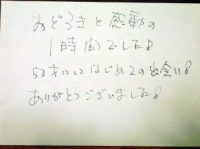 おどろきと感動の
1時間でした♪
50才にしてはじめての出会い♪
ありがとうございました♪